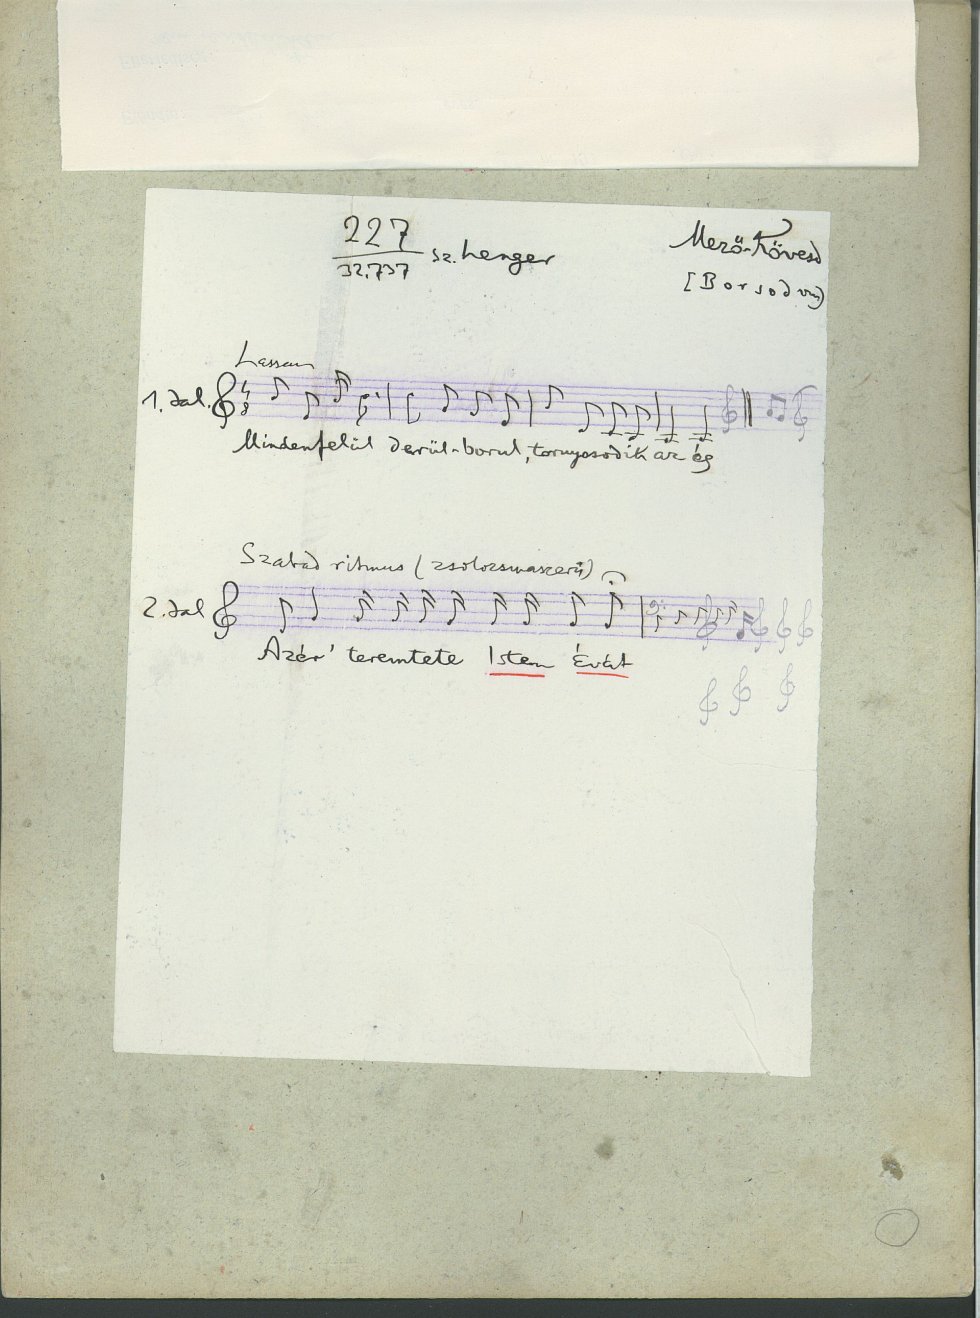 227
32.737 sz. henger
Mező-Kövesd
[Borsod vm]
Lassan
1. dal.
4
8
Mindenfelül derül-borul, tornyosodik az ég
Szabad ritmus (zsolozsmaszerű)
2. dal
Azér' teremtete Isten Évát